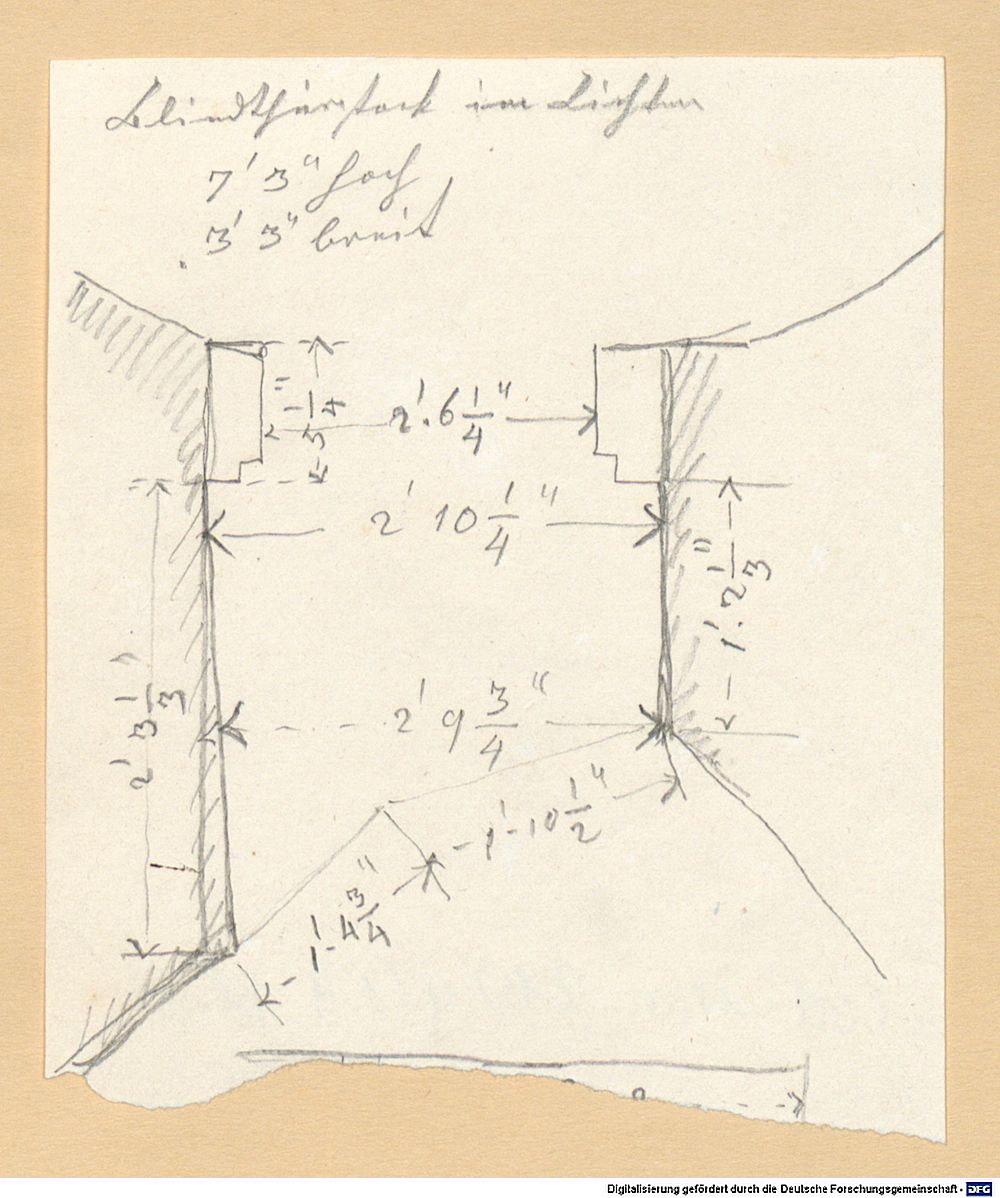 Blindthürstock im Lichten
7' 3" hoch
3' 3" breit
3 1/4"
2'. 6 1/4"
2' 10 1/4"
1'. 2 1/3"
2' 3 1/3"
2' 9 3/4"
1' 10 1/2"
1' 4 3/4"
Digitalisierung gefördert durch die Deutsche Forschungsgemeinschaft - DFG